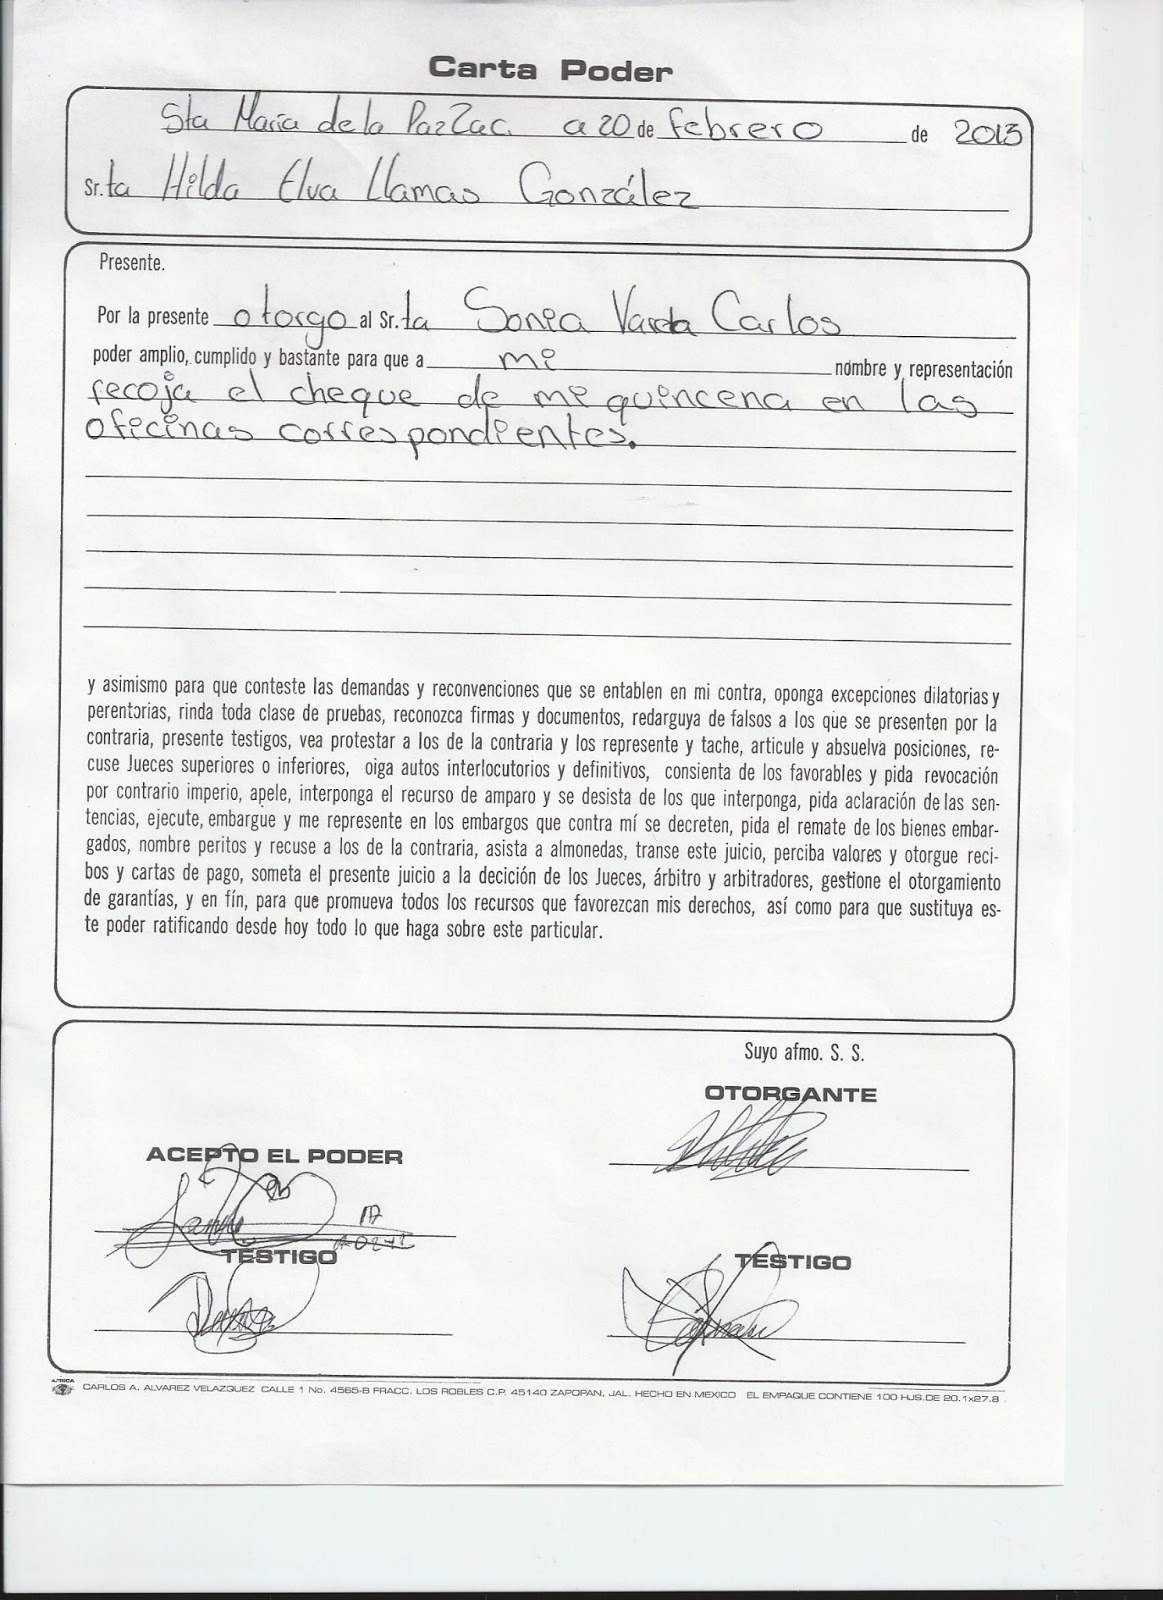 Carta Poder
Sta María de la Paz Zac. a 20 de febrero de 2013
Sr.ta Hilda Elva Llamas González
Presente.
Por la presente otorgo al Sr.ta Sonia Carlos
poder amplio, cumplido y bastante para que a mi nombre y representación
recoja el cheque de mi quincena en las
oficinas correspondientes.
y asimismo para que conteste las demandas y reconvenciones que se entablen en mi contra, oponga excepciones dilatorias y
perentorias, rinda toda clase de pruebas, reconozca firmas y documentos, redarguya de falsos a los que se presenten por la
contraria, presente testigos, vea protestar a los de la contraria y los represente y tache, articule y absuelva posiciones, re-
cuse Jueces superiores o inferiores, oiga autos interlocutorios y definitivos, consienta de los favorables y pida revocación
por contrario imperio, apele, interponga el recurso de amparo y se desista de los que interponga, pida aclaración de las sen-
tencias, ejecute, embargue y me represente en los embargos que contra mí se decreten, pida el remate de los bienes embar-
gados, nombre peritos y recuse a los de la contraria, asista a almonedas, transe este juicio, perciba valores y otorgue reci-
bos y cartas de pago, someta el presente juicio a la decición de los Jueces, árbitro y arbitradores, gestione el otorgamiento
de garantías, y en fín, para que promueva todos los recursos que favorezcan mis derechos, así como para que sustituya es-
te poder ratificando desde hoy todo lo que haga sobre este particular.
Suyo afmo. S. S.
OTORGANTE
ACEPTO EL PODER
TESTIGO
TESTIGO
CARLOS A. ALVAREZ VELAZQUEZ CALLE 1 No. 4565-B FRACC. LOS ROBLES C.P. 45140 ZAPOPAN, JAL. HECHO EN MEXICO EL EMPAQUE CONTIENE 100 HJS. DE 20.1x27.8